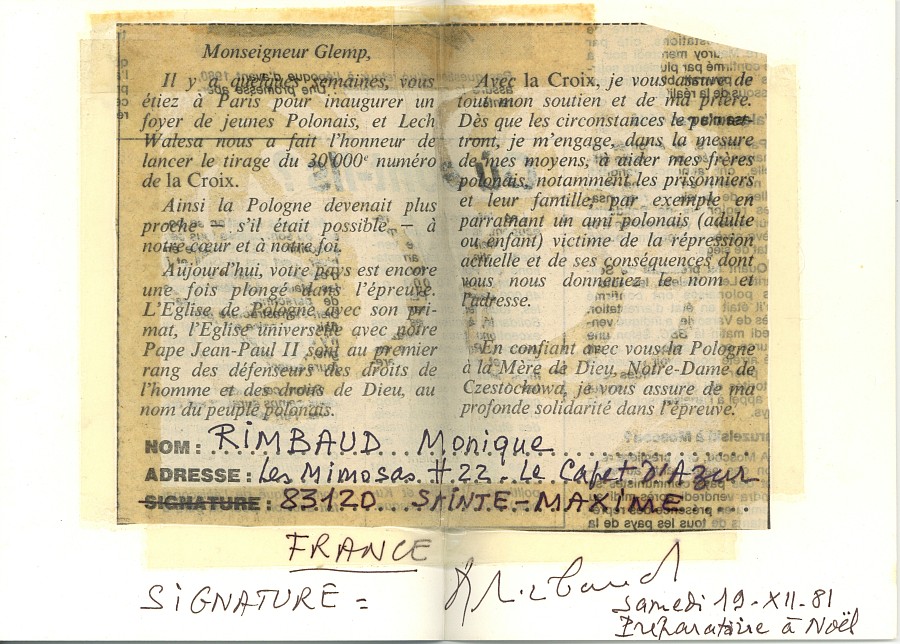 Monseigneur Glemp,
Il y a quelques semaines, vous
étiez à Paris pour inaugurer un
foyer de jeunes Polonais, et Lech
Walesa nous a fait l'honneur de
lancer le tirage du 30 000e numéro
de la Croix.
Ainsi la Pologne devenait plus
proche – s'il était possible – à
notre cœur et à notre foi.
Aujourd'hui, votre pays est encore
une fois plongé dans l'épreuve.
L'Eglise de Pologne avec son pri-
mat, l'Eglise universelle avec notre
Pape Jean-Paul II sont au premier
rang des défenseurs des droits de
l'homme et des droits de Dieu, au
nom du peuple polonais.
Avec la Croix, je vous assure de
tout mon soutien et de ma prière.
Dès que les circonstances le permet-
tront, je m'engage, dans la mesure
de mes moyens, à aider mes frères
polonais, notamment les prisonniers
et leur famille, par exemple en
parrainant un ami polonais (adulte
ou enfant) victime de la répression
actuelle et de ses conséquences dont
vous nous donneriez le nom et
l'adresse.
En confiant avec vous la Pologne
à la Mère de Dieu, Notre-Dame de
Czestochowa, je vous assure de ma
profonde solidarité dans l'épreuve.
NOM : RIMBAUD Monique
ADRESSE : Les Mimosas # 22 - Le Capet D'Azur
SIGNATURE : 83120 SAINTE-MAXIME
FRANCE
SIGNATURE = Rimbaud
Samedi 19-XII-81
Préparatoire à Noël